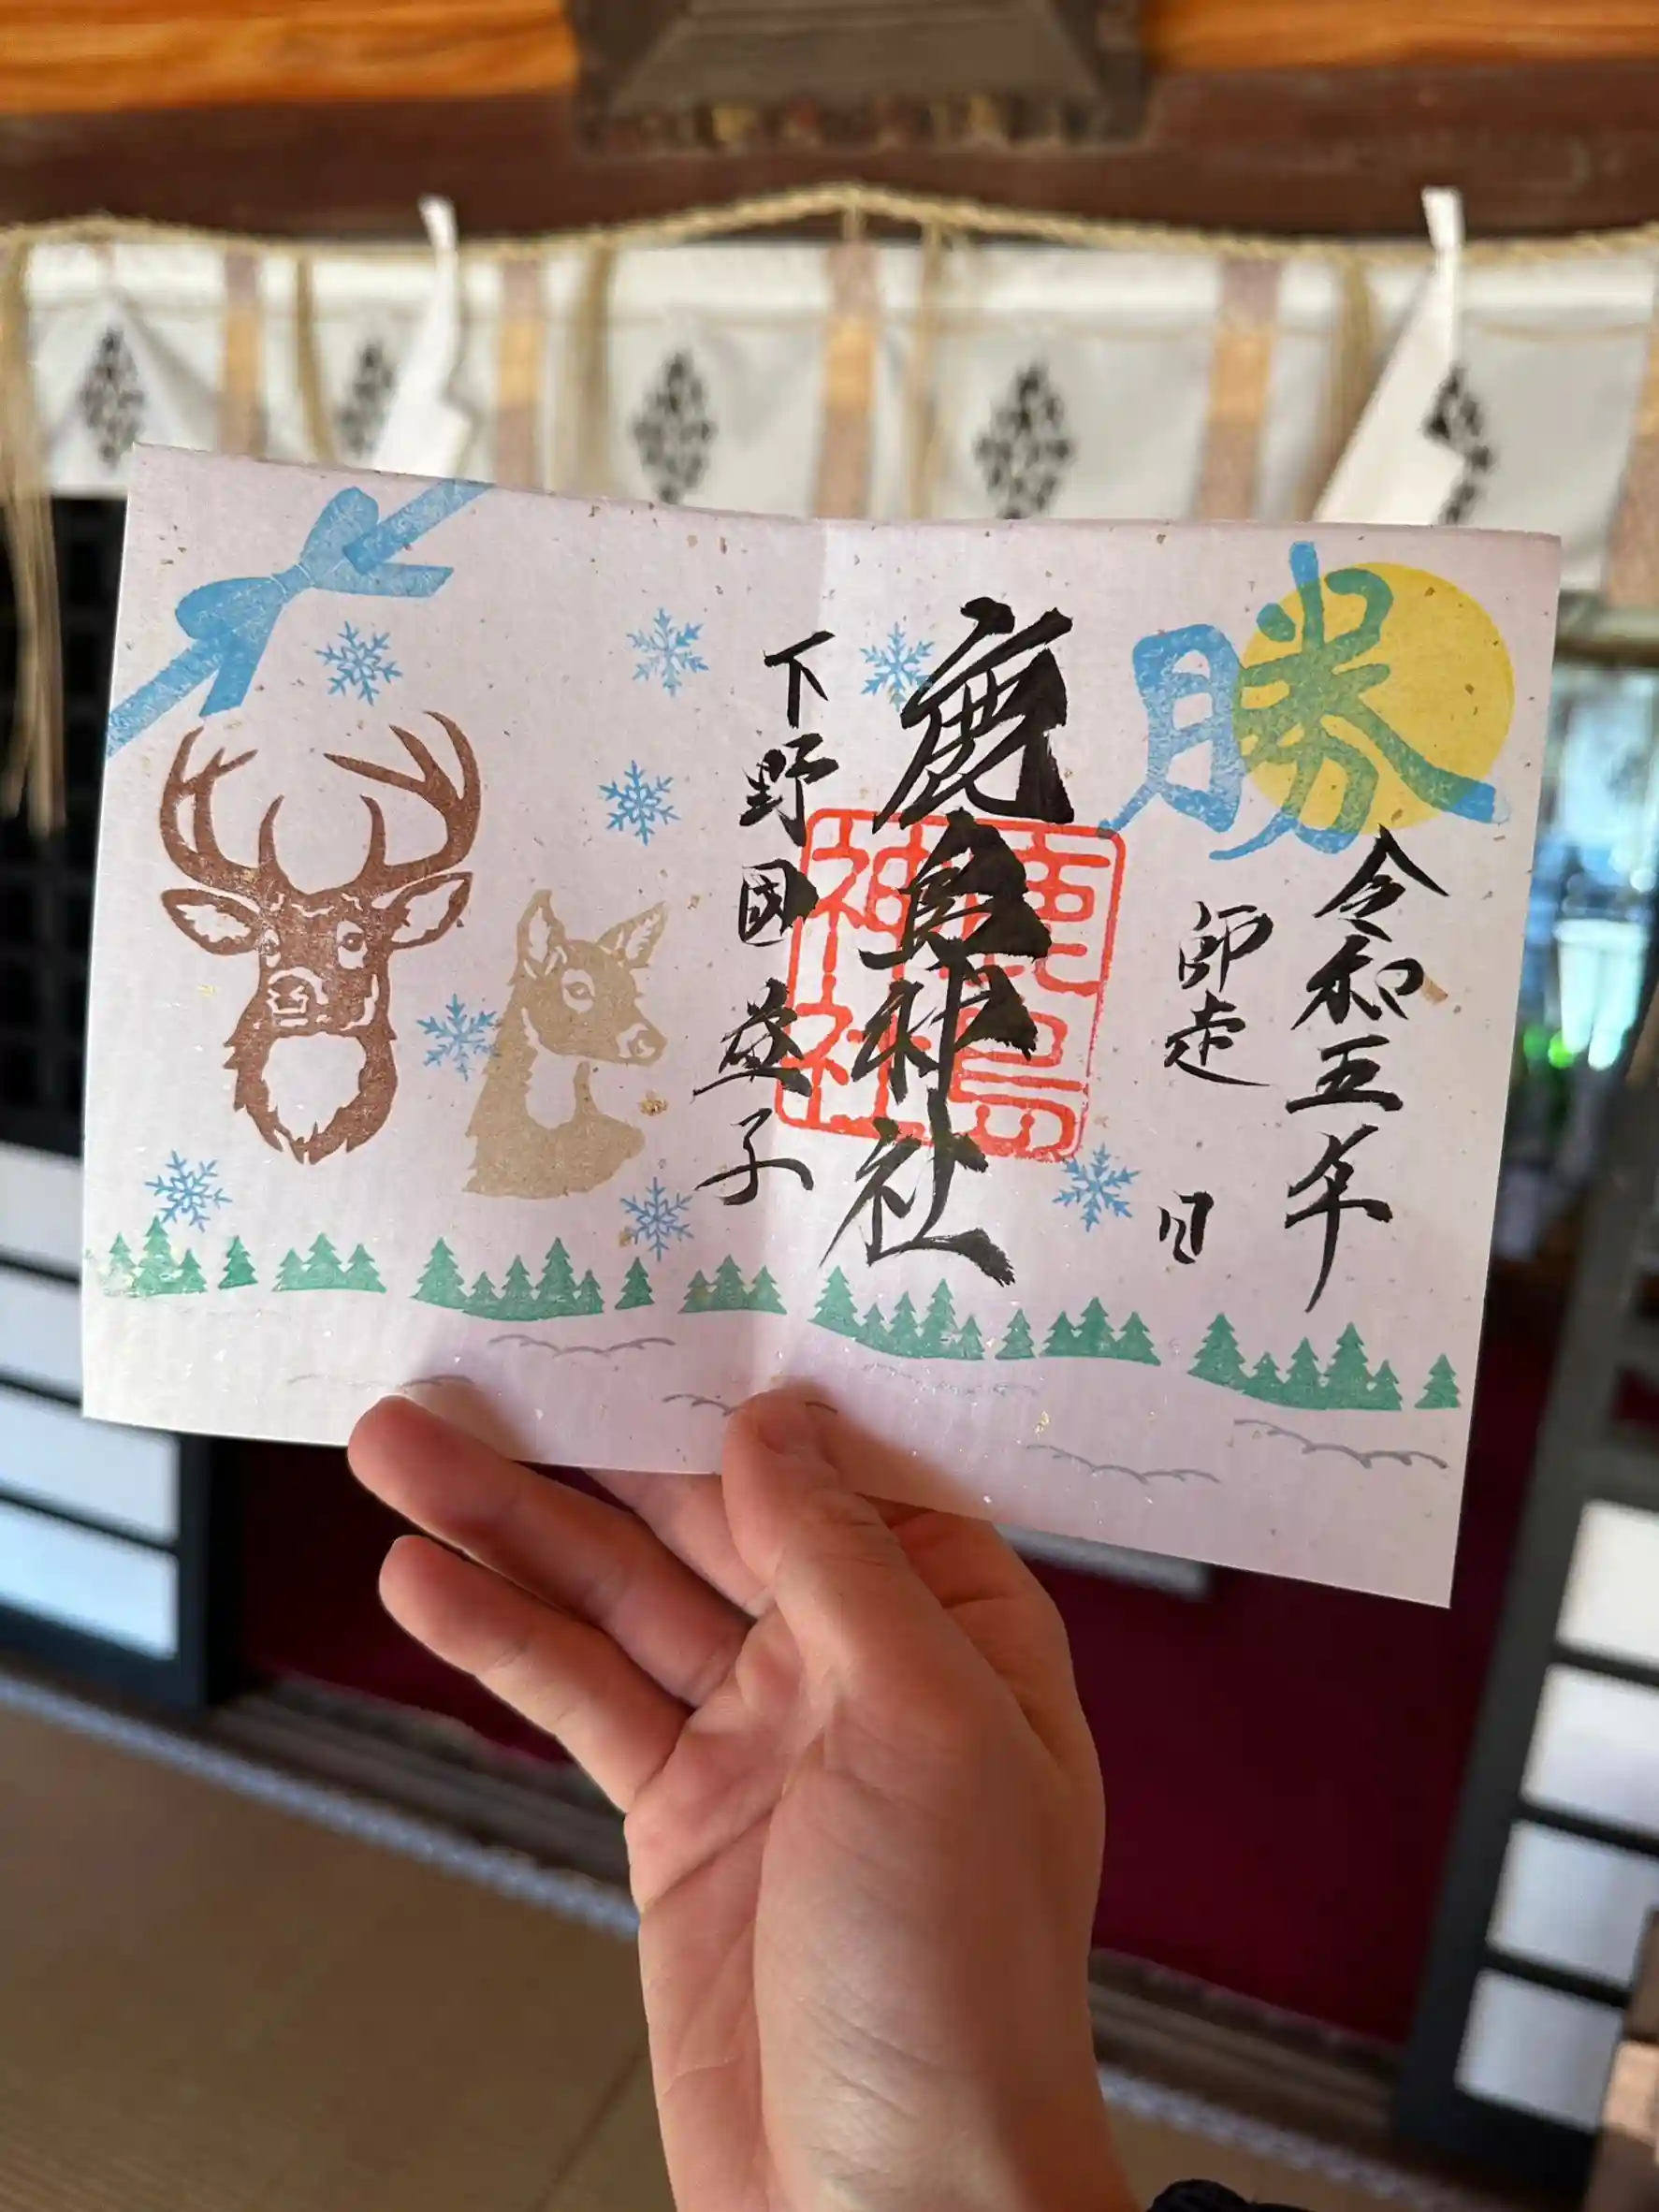 勝
令和五年
師走 日
鹿島神社
鹿島
神社
下野国益子